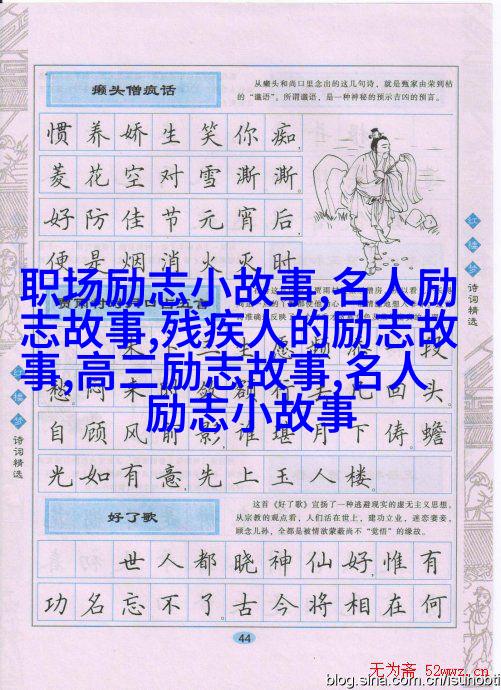 癞头僧疯话
从癞头和尚口里念出的这几句诗，就是甄家由荣到枯
的“谶语”。所谓谶语，是一种神秘的预示吉凶的预言。
惯养娇生笑你痴，
菱花空对雪澌澌。
好防佳节元宵后，
便是烟消火灭时
职场励志小故事,名人励
志故事,残疾人的励志故
事,高三励志故事,名人
励志小故事
愁 闷来时敛额 行去几回头。
自顾风前影，谁堪月下俦。蟾
光如有意，先上玉人楼。
好了歌
这首《好了歌》宣扬了一种逃避现实的虚无主义思想。
从宗教的观点看，人们活在世上，建功立业，迷恋妻妾，
顾念儿孙，全都是被情欲蒙蔽尚不“觉悟”的缘故。
世人都晓神仙好，惟有
功名忘不了。古今将相在何
44
红楼梦
诗词精选
红楼梦
诗词精选
无为斋 52wwz.cn
blog.sina.com.cn/isunobti